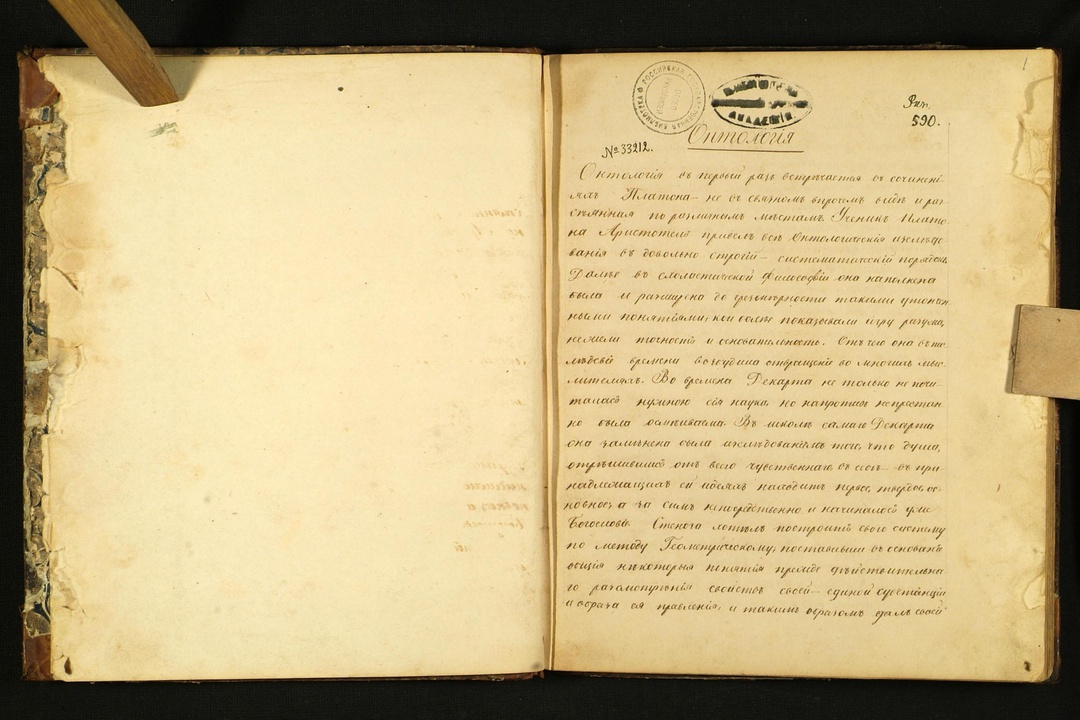 1
РОССИЙСКАЯ
БИБЛИОТЕКА
АКАДЕМІИ
Рук.
590.
№ 33212.
Онтологія
Онтологія въ первый разъ встрѣчается въ сочинені-
яхъ Платона — не въ связномъ впрочемъ видѣ и раз-
сѣянная по различнымъ мѣстамъ. Ученикъ Плато
на Аристотель привелъ всѣ Онтологическія изслѣдо
ванія въ довольно строгій — систематическій порядокъ
Далѣе въ схоластической философіи она наполнена
была и расширена до чрезмѣрности такими утончен
ными понятіями, кои болѣе показывали игру разума,
нежели точность и основательность. Отъ чего она въ по
слѣдствіи времени возбудила отвращеніе во многихъ мыс-
лителяхъ. Во времена Декарта не только не почи-
талась нужною сія наука, но напротивъ непрестан
но была осмѣиваема. Въ школѣ самаго Декарта
она замѣнена была изслѣдованіемъ того, что душа,
отрѣшившись отъ всего чувственнаго, въ себѣ — въ при-
надлежащихъ ей идеяхъ находитъ первое, твердое, ос-
новное, а за симъ непосредственно и начиналось уже
Богословіе. Спиноза хотѣлъ построить свою систему
по методу Геометрическому, поставивши въ основаніе
общія нѣкоторыя понятія прежде дѣйствительна
го разсмотрѣнія свойствъ своей — единой субстанціи
и образа ея явленія, и такимъ образомъ далъ своей